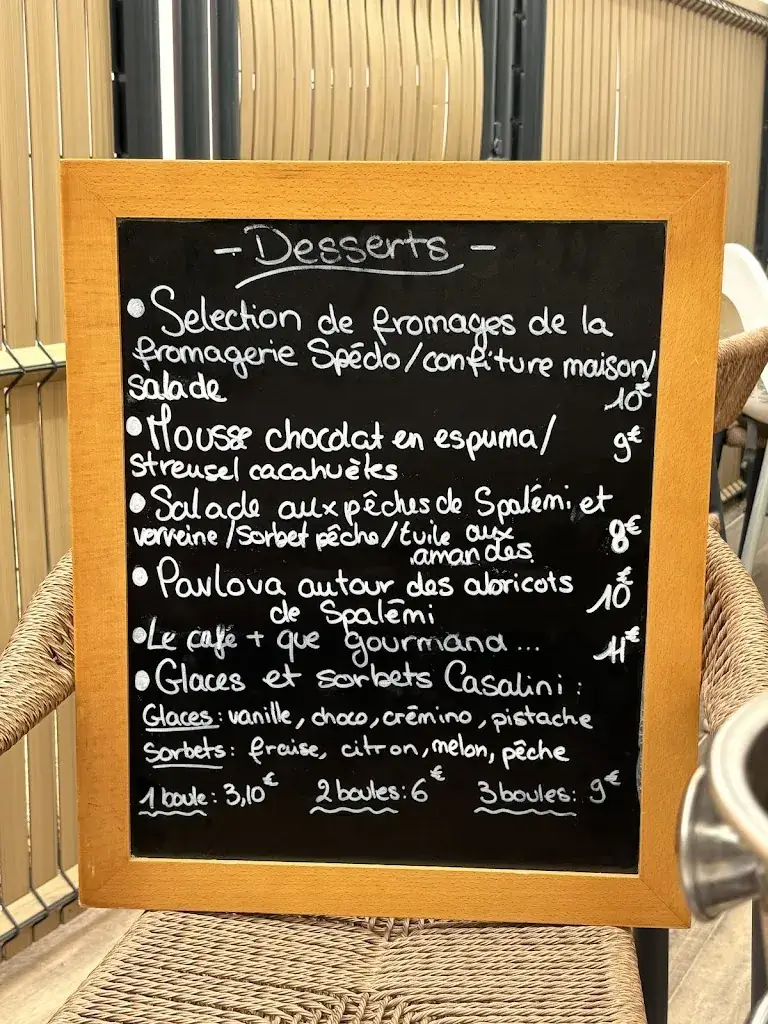 - Desserts -
• Selection de fromages de la
fromagerie Spédo/confiture maison/
salade 10€
• Mousse chocolat en espuma/ 9€
streusel cacahuètes
• Salade aux pêches de Spalémi et
verveine/sorbet pêche/tuile aux 8€
amandes
• Pavlova autour des abricots 10€
de Spalémi
• Le café + que gourmand... 11€
• Glaces et sorbets Casalini :
Glaces : vanille, choco, crémino, pistache
Sorbets : fraise, citron, melon, pêche
1 boule : 3,10€ 2 boules : 6€ 3 boules : 9€